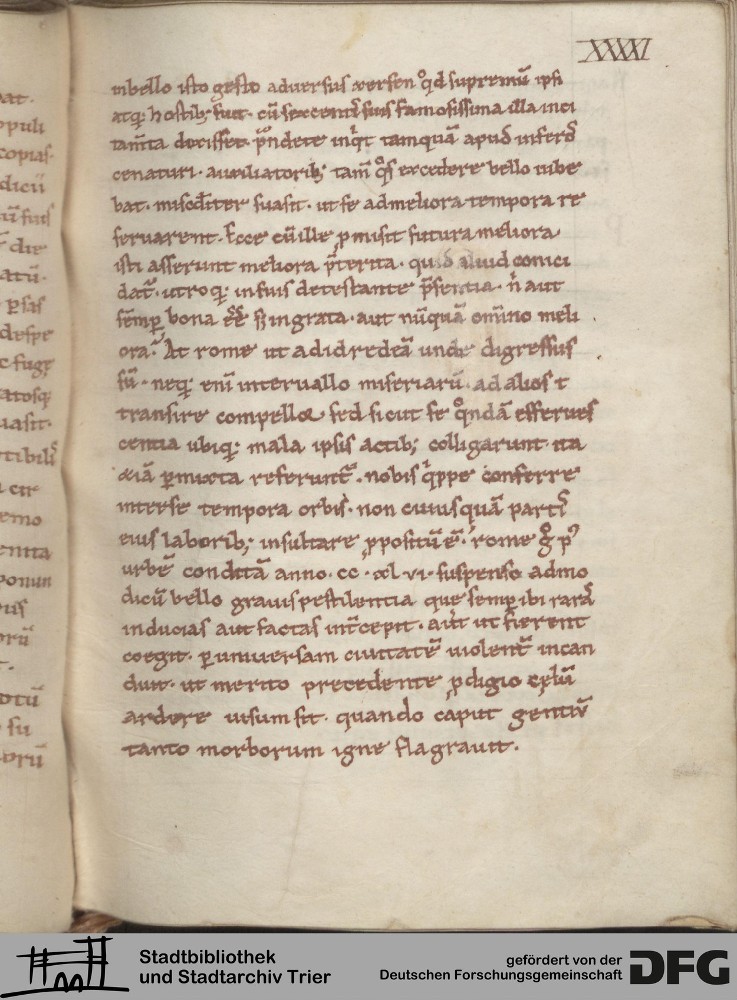 XXXXI
inbello isto gesto adversus xersen qd supremū ipsi
atq; hostib; fuit. cū sexcentis suis famosissima illa inci
tam̄ta docisset. p̄ndete inq̇t tamquā apud inferos
cenaturi. auxiliatorib; tam̄ q̊s excedere bello iube
bat. miscd̄iter suasit. ut se admeliora tempora re
servarent. Ecce cū ille p̱misit futura meliora
isti asserunt meliora p̄terita. quid aliud conici
dat̄. utroq; insuis detestante p̄sentia. n̄ aut
sēmp bona ēē s; ingrata. aut nūquā om̄ino meli
ora. At rome ut adid redeā unde digressus
sū. neq; enī intervallo miseriarū. adalios t
transire compellor sed sicut se q̊ndā efferves
centia ubiq; mala ipsis actib; colligarunt. ita
&iā p̱mixta referunt̄. nobis q̇ppe conferre
interse tempora orbis. non cuiusquā partis
eius laborib; insultare p̱positū ē. rome ḡ p'
urbē conditā anno. cc. xl vi. suspenso admo
dicū bello gravis pestilentia que semp̱ ibi raras
inducias aut factas int̄cepit. aut ut fierent
coegit. p̱ universam civitatē violent̄ incan
duit. ut merito precedente p̱digio cęlū
ardere visum sit. quando caput gentiū
tanto morborum igne flagravit.
Stadtbibliothek
und Stadtarchiv Trier
gefördert von der
Deutschen Forschungsgemeinschaft
DFG